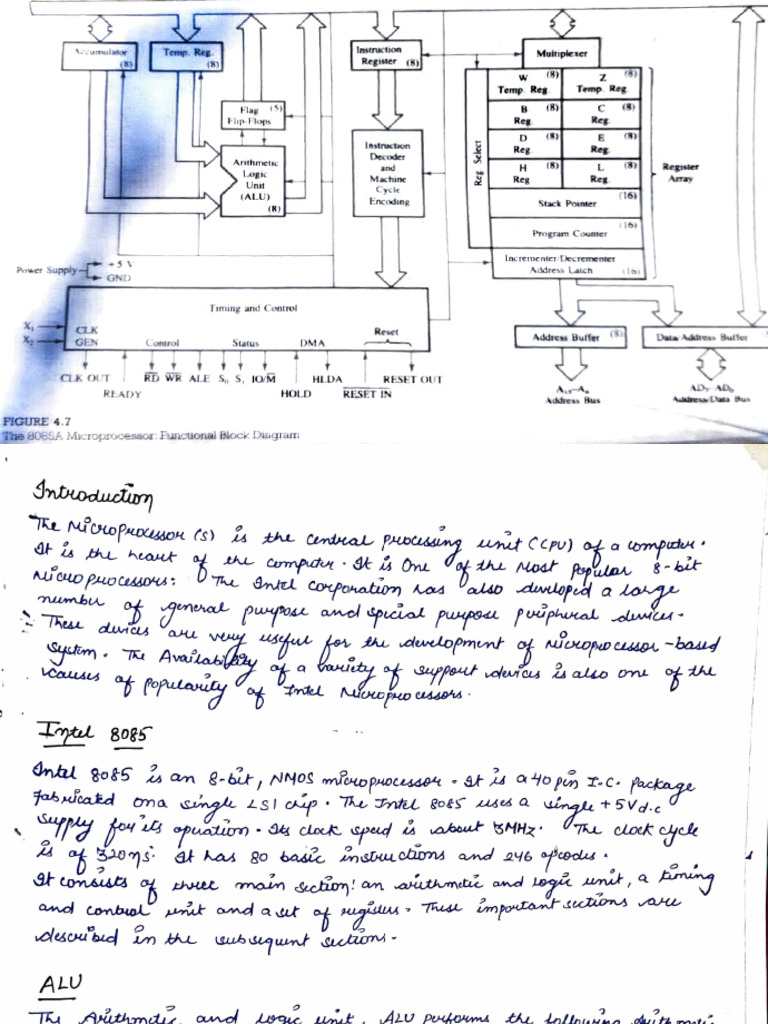 Accumulator
(8)
Temp. Reg.
(8)
Instruction
Register (8)
Multiplexer
Flag (5)
Flip-Flops
Arithmetic
Logic
Unit
(ALU)
(8)
Instruction
Decoder
and
Machine
Cycle
Encoding
Reg Select
W (8)
Temp. Reg.
Z (8)
Temp. Reg.
B (8)
Reg.
C (8)
Reg.
D (8)
Reg.
E (8)
Reg.
H (8)
Reg
L (8)
Reg.
Stack Pointer (16)
Program Counter (16)
Incrementer/Decrementer
Address Latch (16)
Register
Array
Power Supply
+5 V
GND
Timing and Control
X₁
X₂
CLK
GEN
Control
Status
DMA
Reset
CLK OUT
READY
RD WR ALE S₀ S₁ IO/M
HOLD
HLDA
RESET IN
RESET OUT
Address Buffer (8)
Data/Address Buffer
A₁₅–A₈
Address Bus
AD₇–AD₀
Address/Data Bus
FIGURE 4.7
The 8085A Microprocessor: Functional Block Diagram
Introduction
The Microprocessor (s) is the central processing unit (CPU) of a computer.
It is the heart of the computer. It is One of the Most Popular 8-bit
Microprocessors: The Intel corporation has also developed a large
number of general purpose and special purpose peripheral devices.
These devices are very useful for the development of Microprocessor-based
System. The Availability of a variety of support devices is also one of the
causes of popularity of Intel Microprocessors.
Intel 8085
Intel 8085 is an 8-bit, NMOS microprocessor. It is a 40 pin I.C. package
fabricated on a single LSI chip. The Intel 8085 uses a single +5V d.c
supply for its operation. Its clock speed is about 3MHz. The clock cycle
is of 320ηs. It has 80 basic instructions and 246 opcodes.
It consists of three main section: an arithmetic and logic unit, a timing
and control unit and a set of registers. These important sections are
described in the subsequent sections.
ALU
The Arithmetic and logic unit, ALU performs the following arithmetic